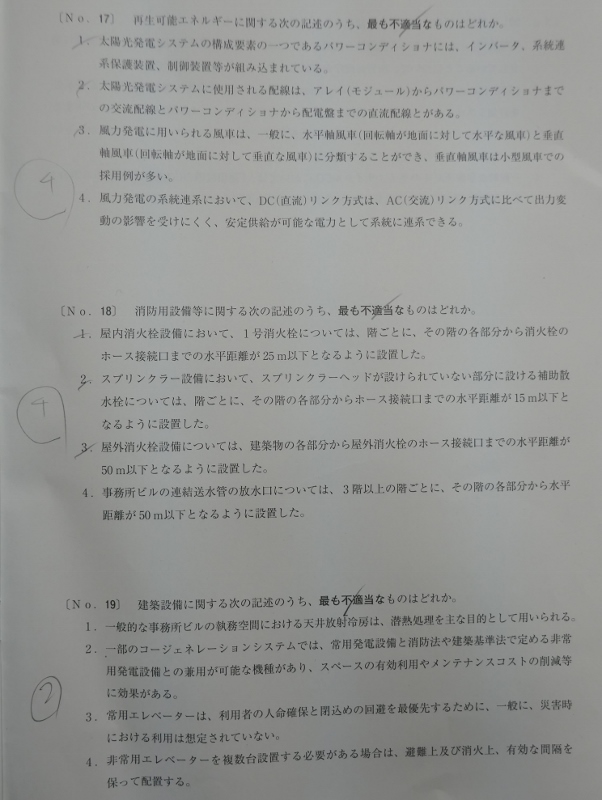 〔Ｎｏ．17〕　再生可能エネルギーに関する次の記述のうち、最も不適当なものはどれか。
1．太陽光発電システムの構成要素の一つであるパワーコンディショナには、インバータ、系統連
系保護装置、制御装置等が組み込まれている。
2．太陽光発電システムに使用される配線は、アレイ(モジュール)からパワーコンディショナまで
の交流配線とパワーコンディショナから配電盤までの直流配線とがある。
3．風力発電に用いられる風車は、一般に、水平軸風車(回転軸が地面に対して水平な風車)と垂直
軸風車(回転軸が地面に対して垂直な風車)に分類することができ、垂直軸風車は小型風車での
採用例が多い。
4
4．風力発電の系統連系において、DC(直流)リンク方式は、AC(交流)リンク方式に比べて出力変
動の影響を受けにくく、安定供給が可能な電力として系統に連系できる。
〔Ｎｏ．18〕　消防用設備等に関する次の記述のうち、最も不適当なものはどれか。
1．屋内消火栓設備において、１号消火栓については、階ごとに、その階の各部分から消火栓の
ホース接続口までの水平距離が25ｍ以下となるように設置した。
2．スプリンクラー設備において、スプリンクラーヘッドが設けられていない部分に設ける補助散
水栓については、階ごとに、その階の各部分からホース接続口までの水平距離が15ｍ以下と
なるように設置した。
4
3．屋外消火栓設備については、建築物の各部分から屋外消火栓のホース接続口までの水平距離が
50ｍ以下となるように設置した。
4．事務所ビルの連結送水管の放水口については、３階以上の階ごとに、その階の各部分から水平
距離が50ｍ以下となるように設置した。
〔Ｎｏ．19〕　建築設備に関する次の記述のうち、最も不適当なものはどれか。
1．一般的な事務所ビルの執務空間における天井放射冷房は、潜熱処理を主な目的として用いられる。
2．一部のコージェネレーションシステムでは、常用発電設備と消防法や建築基準法で定める非常
用発電設備との兼用が可能な機種があり、スペースの有効利用やメンテナンスコストの削減等
に効果がある。
2
3．常用エレベーターは、利用者の人命確保と閉込めの回避を最優先するために、一般に、災害時
における利用は想定されていない。
4．非常用エレベーターを複数台設置する必要がある場合は、避難上及び消火上、有効な間隔を
保って配置する。